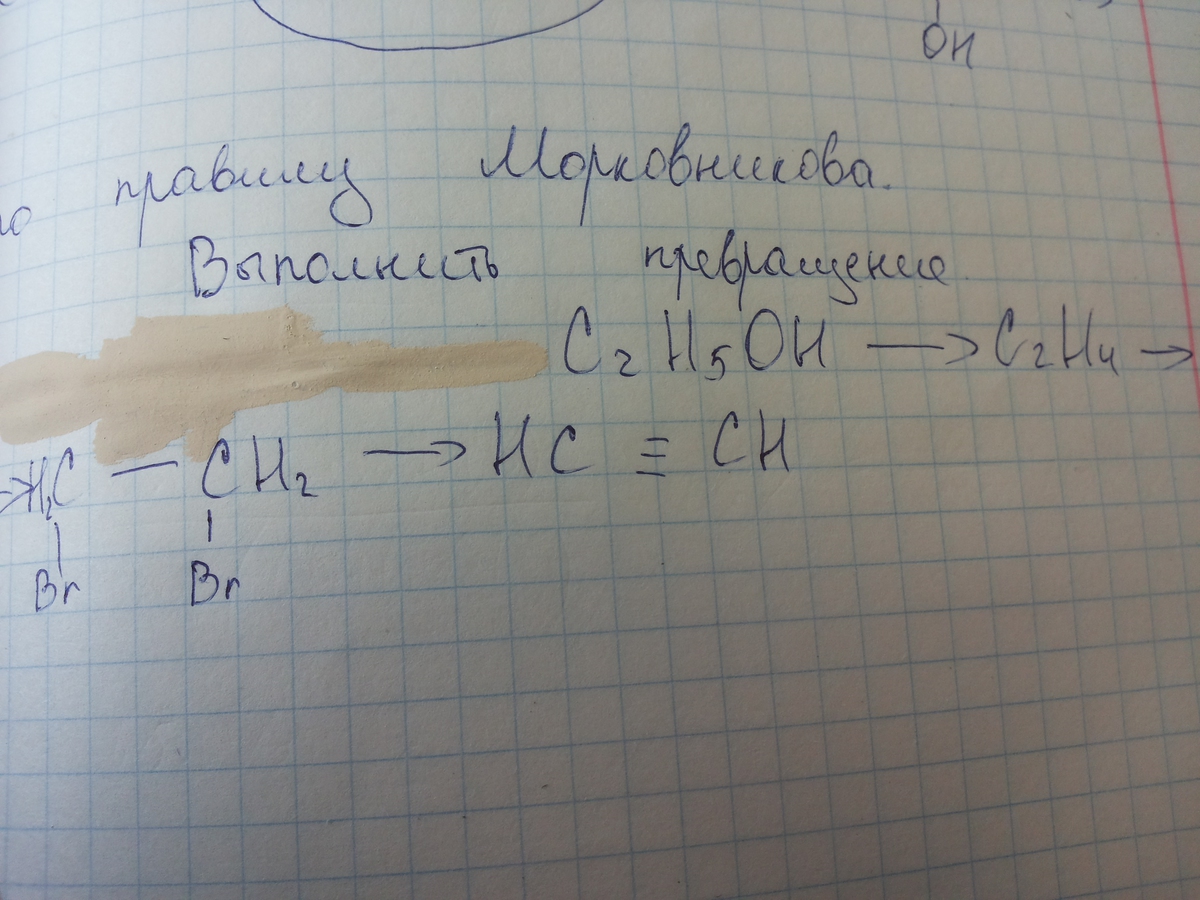 OH
по правилу Морковникова.
Выполнить превращение
C₂H₅OH → C₂H₄ →
→ H₂C — CH₂ → HC ≡ CH
| |
Br Br